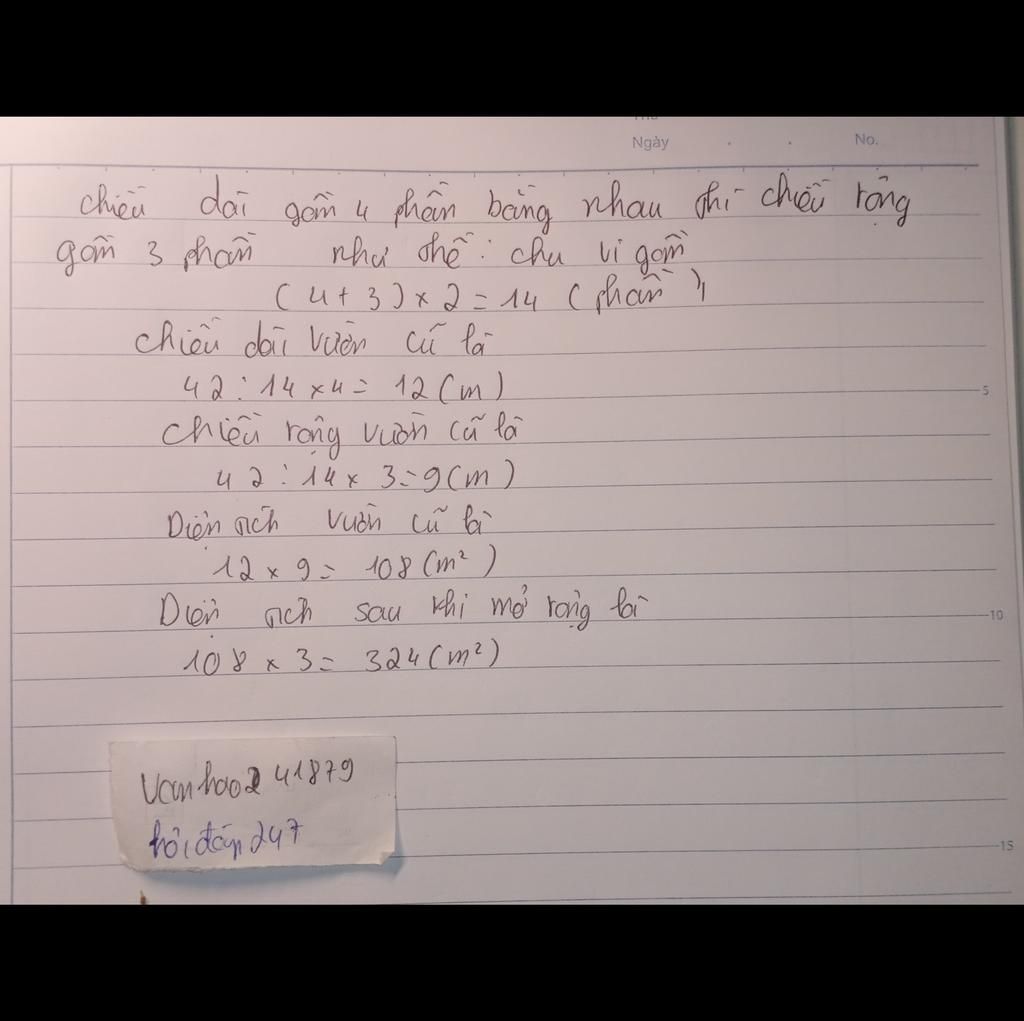 Ngày No.
chiều dài gồm 4 phần bằng nhau thì chiều rộng
gồm 3 phần như thế: chu vi gồm
(4 + 3) × 2 = 14 (phần)
chiều dài vườn cũ là
42 : 14 × 4 = 12 (m)
chiều rộng vườn cũ là
42 : 14 × 3 = 9 (m)
Diện tích vườn cũ là
12 × 9 = 108 (m²)
Diện tích sau khi mở rộng là
108 × 3 = 324 (m²)
5
10
15
vanhao241879
hỏi đáp 247